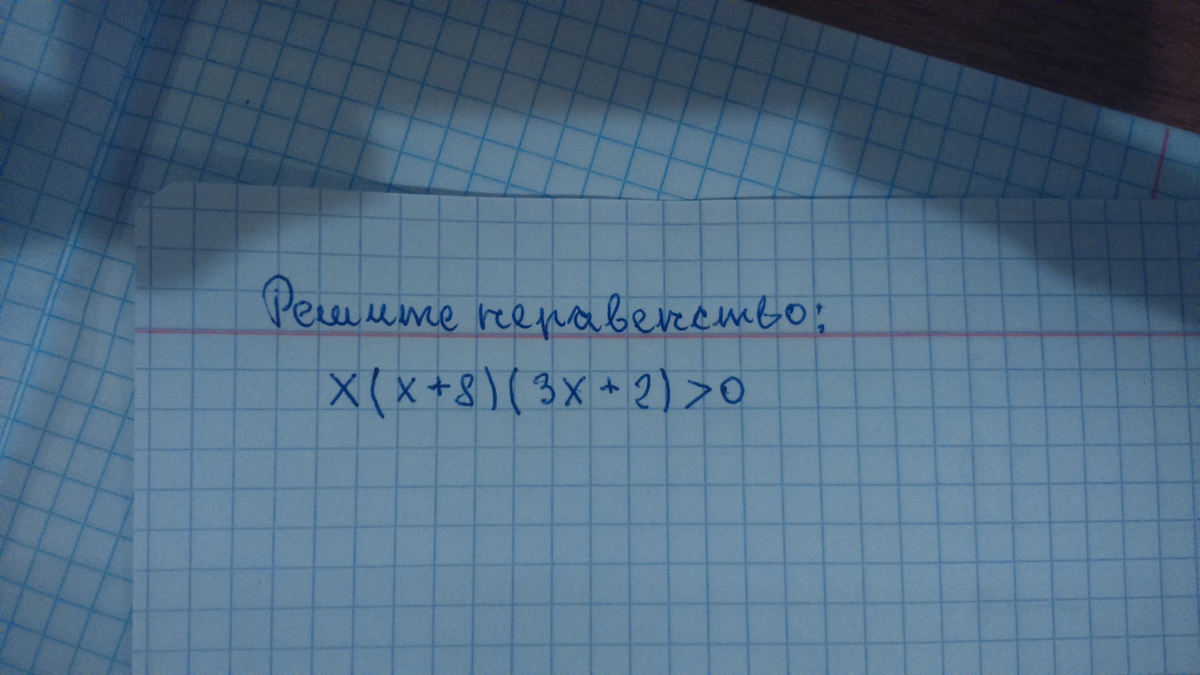 Решите неравенство:
x(x+8)(3x+2)>0